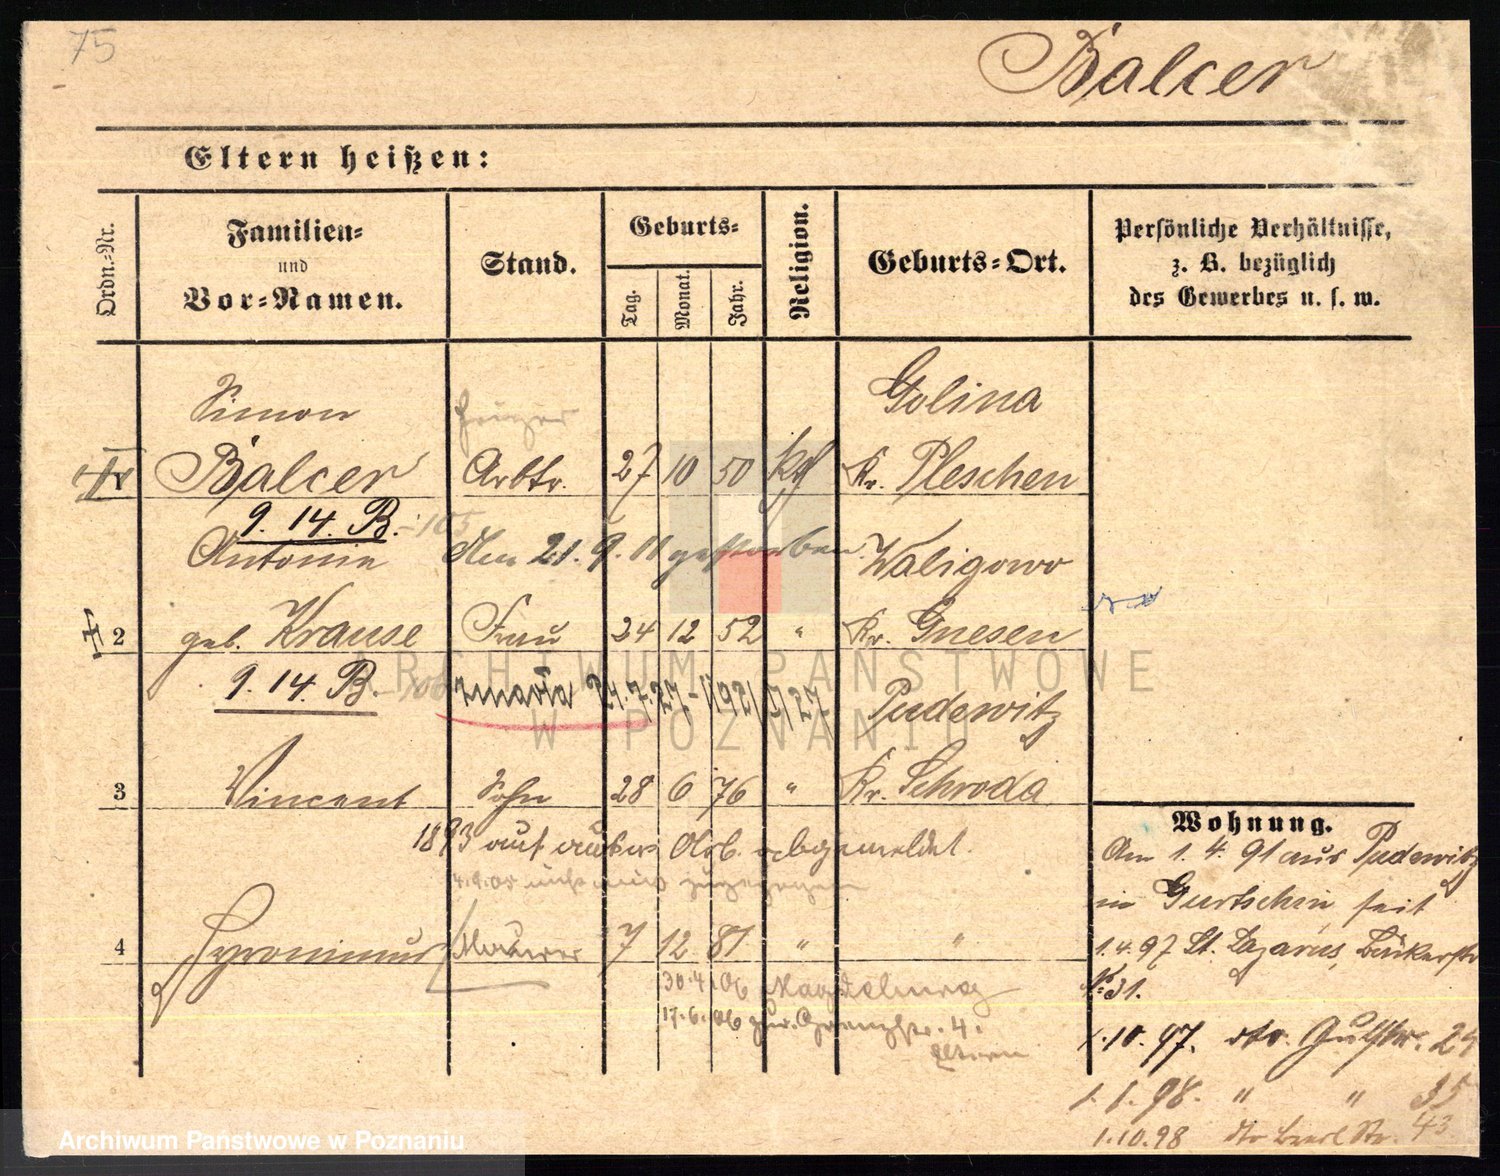 75
Balcer
Eltern heißen:
Ordn.-Nr.
Familien-
und
Vor-Namen.
Stand.
Geburts-
Tag.
Monat.
Jahr.
Religion.
Geburts-Ort.
Persönliche Verhältnisse,
z. B. bezüglich
des Gewerbes u. s. w.
Simon Golina
Balcer Arbtr. 27 10 50 Kth Kr. Pleschen
9. 14. B. - 105
Antonie Am 21. 9. 11 gestorben Waligowo
2 geb. Krause Frau 24 12 52 " Kr. Gnesen
9. 14. B. - 106
Pudewitz
3 Vincent Sohn 28 6 76 " Kr. Schroda
1893 auf abgemeldet.
4 Hyronimus Maurer 7 12 81 " "
30.4.06 Magdeburg
17.6.06 zur. Grenzstr. 4.
Eltern
Wohnung.
Am 1. 4. 91 aus Pudewitz
in Gurtschin seit
1.4.97 St. Lazarus,
No 31.
1.10.97. dto. 24
1.1.98. " " 35
1.10.98 dto Str. 43
ARCHIWUM PAŃSTWOWE
W POZNANIU
Archiwum Państwowe w Poznaniu